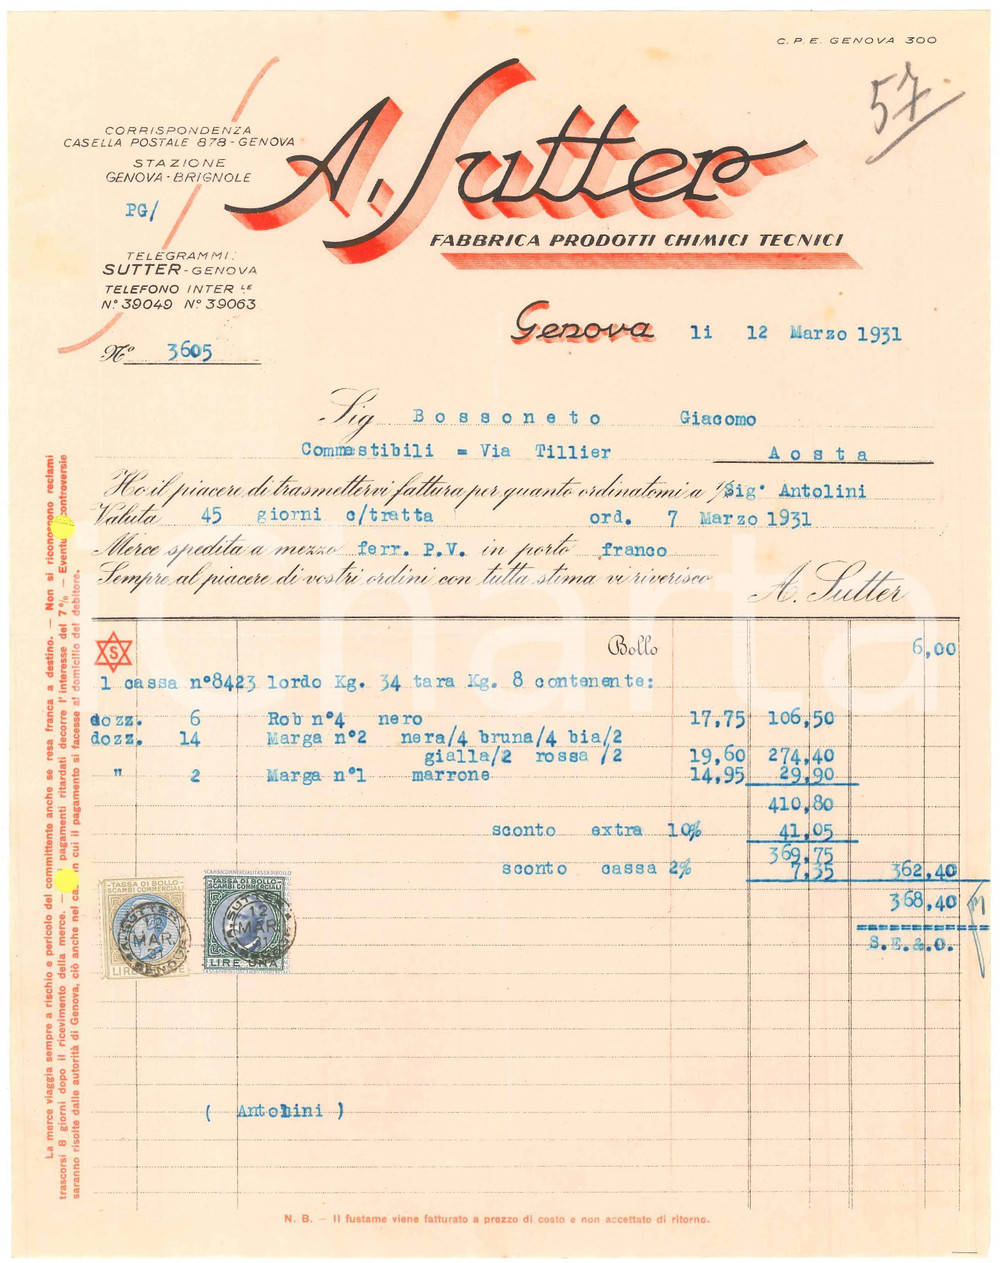 C. P. E. GENOVA 300
57
CORRISPONDENZA
CASELLA POSTALE 878 - GENOVA
STAZIONE
GENOVA - BRIGNOLE
PG/
A. Sutter
FABBRICA PRODOTTI CHIMICI TECNICI
TELEGRAMMI:
SUTTER - GENOVA
TELEFONO INTER LE
N° 39049 N° 39063
Genova li 12 Marzo 1931
N° 3605
Sig Bossoneto Giacomo
Commestibili = Via Tillier Aosta
Ho il piacere di trasmettervi fattura per quanto ordinatomi a Sig. Antolini
Valuta 45 giorni c/tratta ord. 7 Marzo 1931
Merce spedita a mezzo ferr. P.V. in porto franco
Sempre al piacere di vostri ordini con tutta stima vi riverisco
A. Sutter
S
Bollo 6,00
1 cassa n°8423 lordo Kg. 34 tara Kg. 8 contenente:
dozz. 6 Rob n°4 nero 17,75 106,50
dozz. 14 Marga n°2 nera/4 bruna/4 bia/2
gialla/2 rossa /2 19,60 274,40
" 2 Marga n°1 marrone 14,95 29,90
410,80
sconto extra 10% 41,05
369,75
sconto cassa 2% 7,35 362,40
368,40
S.E.&.O.
TASSA DI BOLLO
SCAMBI COMMERCIALI
A. SUTTER
12
MAR.
31
GENOVA
LIRE
TASSA DI BOLLO
SCAMBI COMMERCIALI
A. SUTTER
12
MAR.
31
GENOVA
LIRE UNA
( Antolini )
La merce viaggia sempre a rischio e pericolo del committente anche se resa franca a destino. — Non si riconoscono reclami
trascorsi 8 giorni dopo il ricevimento della merce. — pagamenti ritardati decorre l'interesse del 7% — Eventu controversie
saranno risolte dalle autorità di Genova, ciò anche nel ca in cui il pagamento si facesse al domicilio del debitore.
N. B. — Il fustame viene fatturato a prezzo di costo e non accettato di ritorno.
Charta